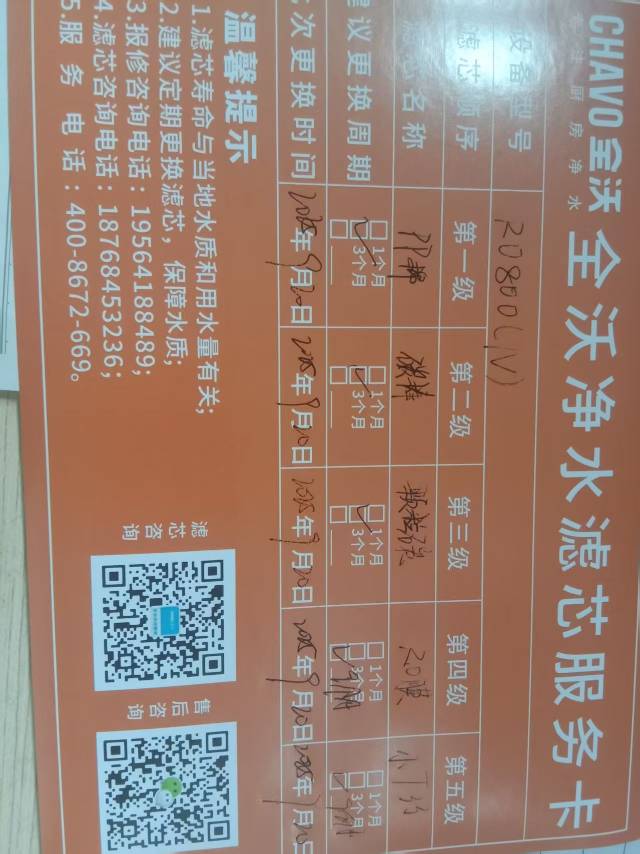 CHAVO 全沃 全沃净水滤芯服务卡
专注厨房净水
设备型号
滤芯顺序 第一级 第二级 第三级 第四级 第五级
滤芯名称 PP棉 碳棒 颗粒碳 RO膜 小T33
建议更换周期 1个月 1个月 1个月 1个月 1个月
3个月 3个月 3个月 3个月 3个月
次更换时间 2025年9月20日 2025年9月20日 2025年9月20日 2025年9月20日
温馨提示
1.滤芯寿命与当地水质和用水量有关;
2.建议定期更换滤芯,保障水质;
3.报修咨询电话:19564188489;
4.滤芯咨询电话:18768453236;
5.服务电话:400-8672-669。
滤芯咨询
售后咨询